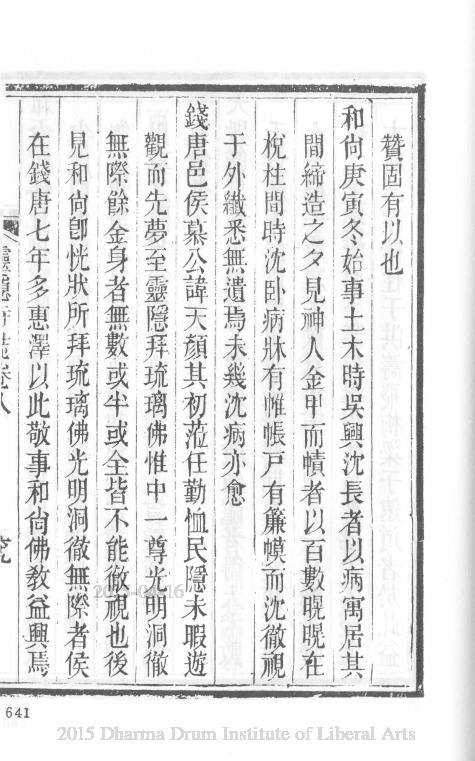 贊固有以也
和尙庚寅冬始事土木時吳興沈長者以病寓居其
間締造之夕見神人金甲而幘者以百數晃晃在
梲柱間時沈卧病牀有帷帳戶有簾幙而沈徹視
于外纖悉無遺焉未幾沈病亦愈
錢唐邑侯慕公諱天顏其初蒞任勤恤民隱未暇遊
觀而先夢至靈隱拜琉璃佛惟中一尊光明洞徹
無際餘金身者無數或半或全皆不能徹視也後
見和尙卽恍狀所拜琉璃佛光明洞徹無際者侯
在錢唐七年多惠澤以此敬事和尙佛敎益興焉
靈隱寺誌卷八
641
2015 Dharma Drum Institute of Liberal Arts